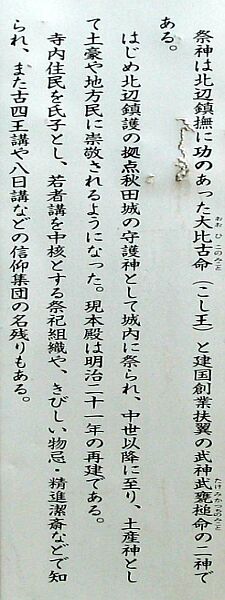 祭神は北辺鎮撫に功のあった大比古命（こし王）と建国創業扶翼の武神武甕槌命の二神で
おおひこのみこと
たけみかつちのみこと
ある。
はじめ北辺鎮護の拠点秋田城の守護神として城内に祭られ、中世以降に至り、土産神とし
て土豪や地方民に崇敬されるようになった。現本殿は明治二十一年の再建である。
寺内住民を氏子とし、若者講を中核とする祭祀組織や、きびしい物忌・精進潔斎などで知
られ、また古四王講や八日講などの信仰集団の名残りもある。